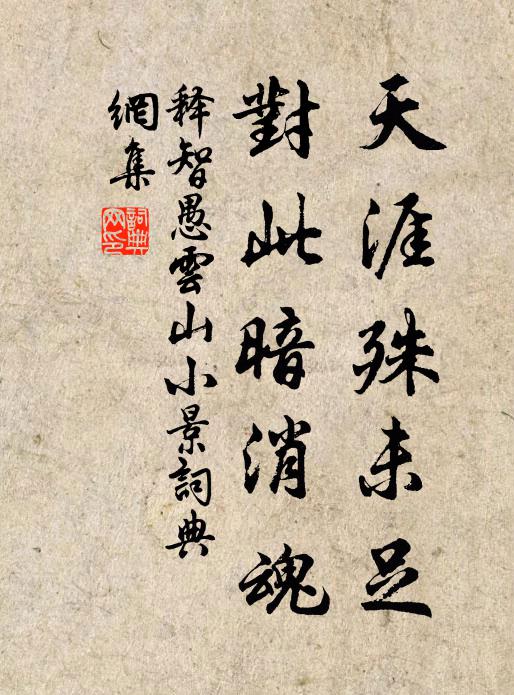 天涯殊未足
對此暗消魂
释智愚雲山小景詞典
網集
詞典
网印